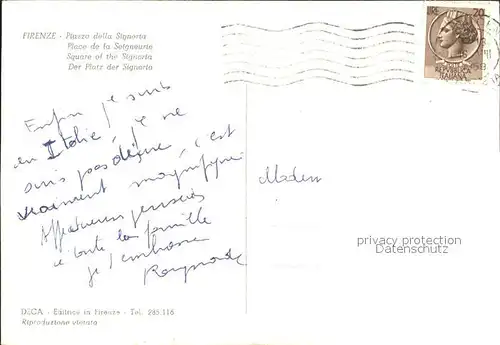 FIRENZE - Piazza della Signoria
Place de la Seigneurie
Square of the Signoria
Der Platz der Signoria
20
Enfin je suis
en Italie, je ne
suis pas déçue, c'est
vraiment magnifique
Affectueuses pensées
à toute la famille
je t'embrasse
Raymonde
Madem
privacy protection
Datenschutz
DECA - Editrice in Firenze - Tel. 285.116
Riproduzione vietata